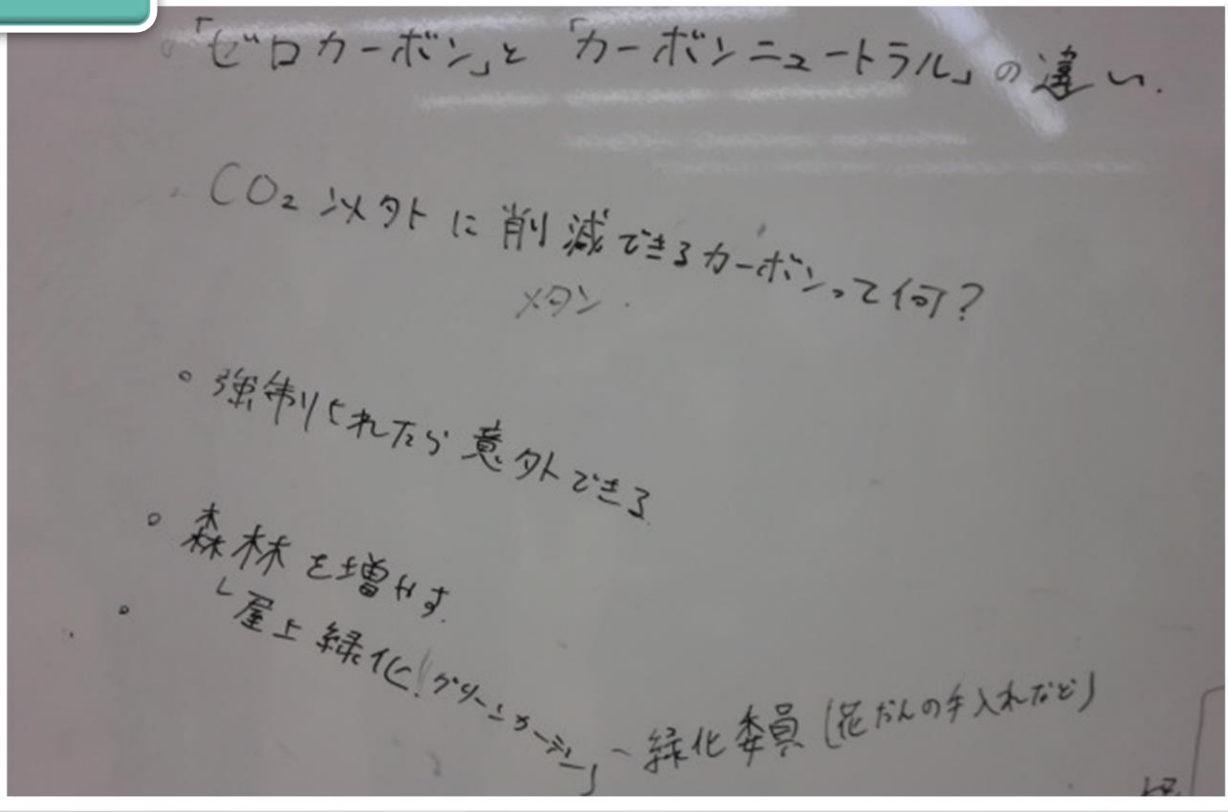 。「ゼロカーボン」と「カーボンニュートラル」の違い.
CO₂以外に削減できるカーボンって何?
メタン.
。強制されたら意外できる
。森林を増やす.
└屋上緑化!グリーンカーテン
～緑化委員(花だんの手入れなど)